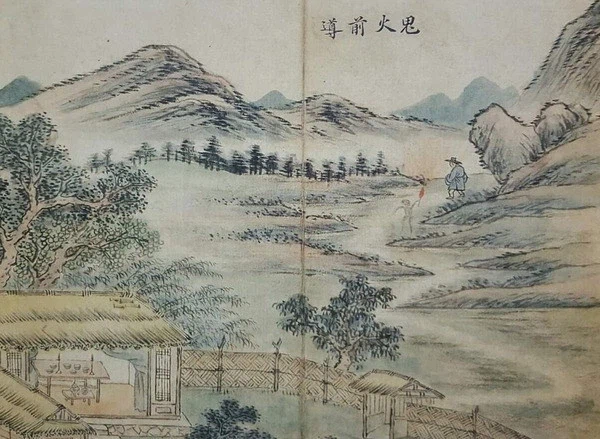 鬼火前導